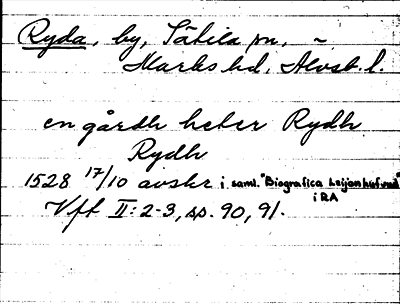 Ryda, by, Sätila sn, ~
Marks hd, Älvsb. l.
en gårdh heter Rydh
Rydh
1528 17/10 avskr i saml. "Biografica Leijonhufvud"
i RA
Vft II: 2-3, sp. 90, 91.